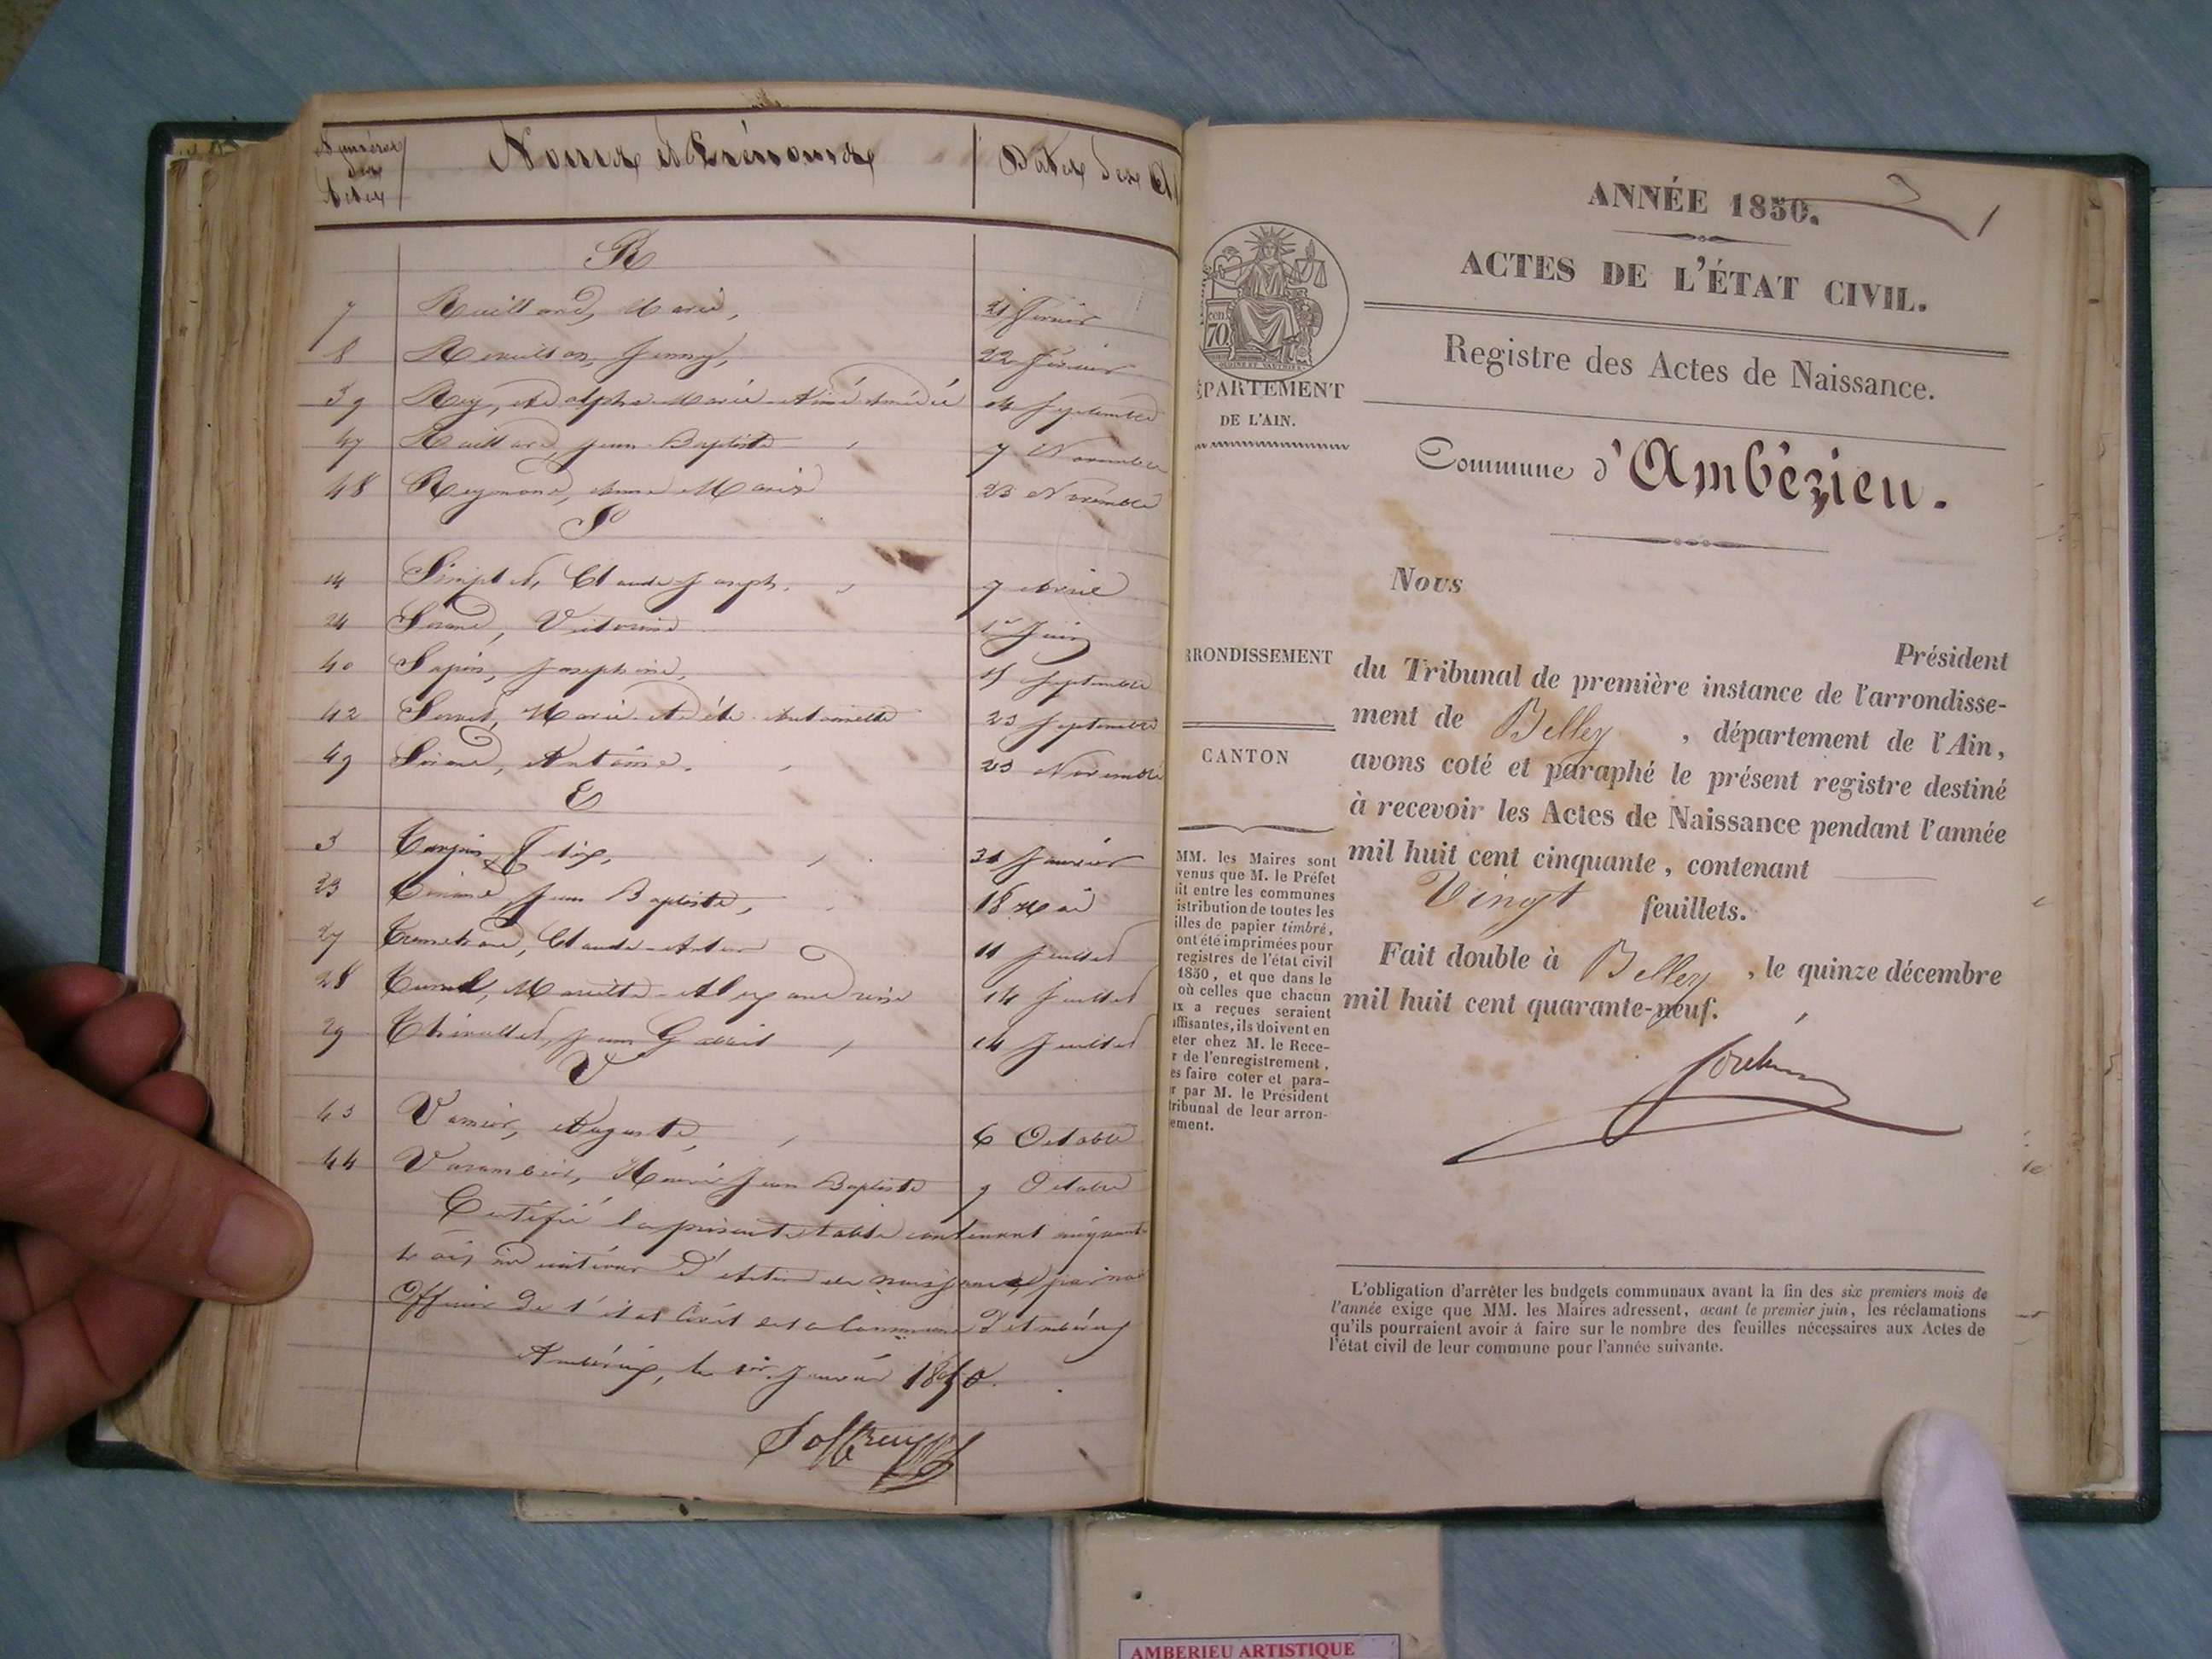 Numéros des Actes
Noms et Prénoms
Dates des A
R
7 Ruillard, Marie, 21 février
8 Jenny, 22 février
39 Rey, Adolphe Marie Aimé Amédée 14 Septembre
47 Jean Baptiste 7 Novembre
48 Reymond, Anne Marie 23 Novembre
S
14 Claude Joseph. 7 Avril
24 1er Juin
40 Sapin, Josephine, 15 Septembre
42 Marie Adèle Antoinette 23 Septembre
49 Antoine. 23 Novembre
T
3 Félix, 31 Janvier
23 Jean Baptiste, 18 Mai
27 Claude 11 Juillet
28 Alexandrine 14 Juillet
29 Jean 14 Juillet
V
43 Auguste, 6 Octobre
44 Jean Baptiste 9 Octobre
Certifié la présente table contenant cinquante
trois d'Actes de naissance, par nous
Officier de l'état Civil de la Commune d'Ambérieux
Ambérieux, le 1er Janvier 1850.
ANNÉE 1850.
1
ACTES DE L'ÉTAT CIVIL.
Registre des Actes de Naissance.
cen. 70
ÉPARTEMENT
DE L'AIN.
Commune d'Ambézieu.
Nous
Président
du Tribunal de première instance de l'arrondisse-
ment de Belley , département de l'Ain,
avons coté et paraphé le présent registre destiné
à recevoir les Actes de Naissance pendant l'année
mil huit cent cinquante, contenant
Vingt feuillets.
Fait double à Belley , le quinze décembre
mil huit cent quarante-neuf.
RRONDISSEMENT
CANTON
MM. les Maires sont
venus que M. le Préfet
it entre les communes
istribution de toutes les
illes de papier timbré,
ont été imprimées pour
registres de l'état civil
1850, et que dans le
où celles que chacun
ux a reçues seraient
uffisantes, ils doivent en
eter chez M. le Rece-
r de l'enregistrement,
es faire coter et para-
r par M. le Président
tribunal de leur arron-
ement.
L'obligation d'arrêter les budgets communaux avant la fin des six premiers mois de
l'année exige que MM. les Maires adressent, avant le premier juin, les réclamations
qu'ils pourraient avoir à faire sur le nombre des feuilles nécessaires aux Actes de
l'état civil de leur commune pour l'année suivante.
AMBERIEU ARTISTIQUE